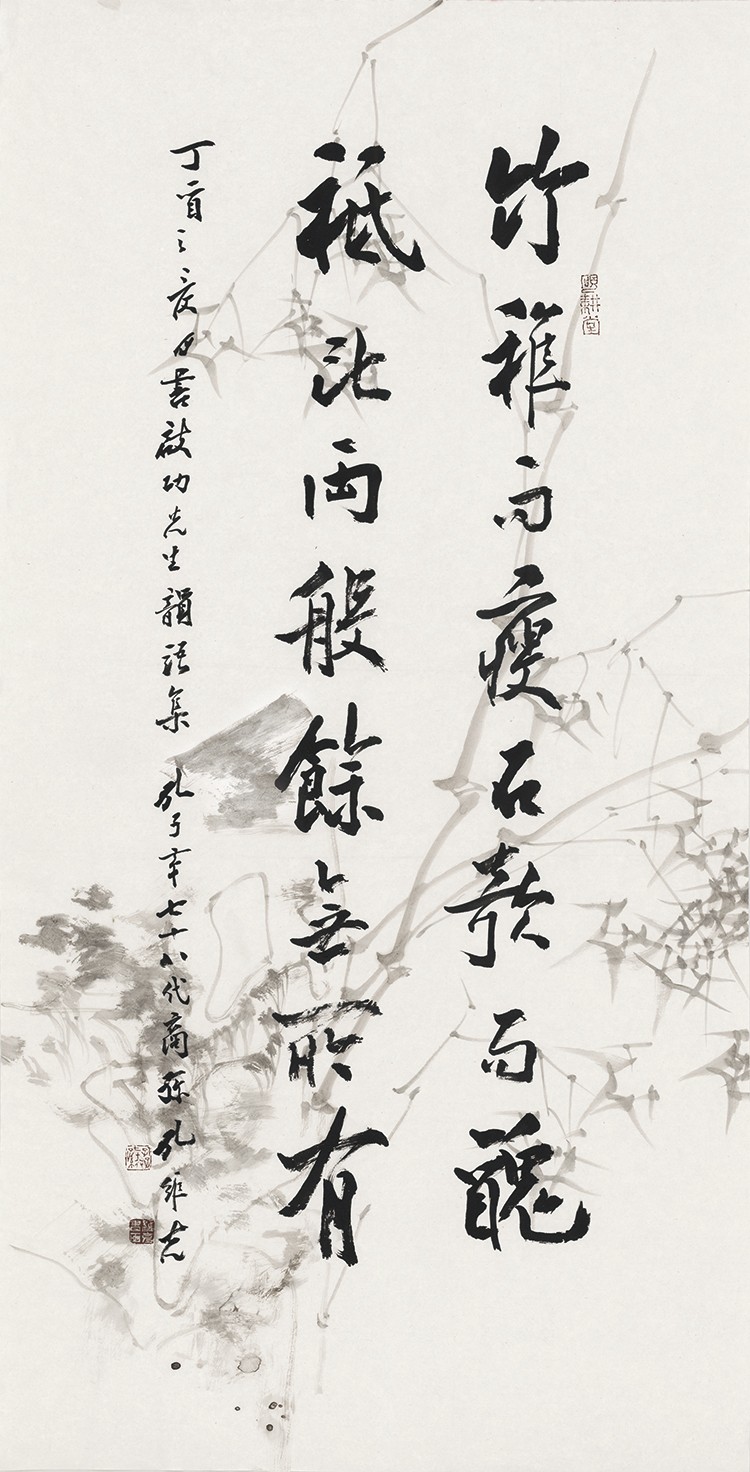 竹稚而瘦石欹而醜
祗此両般餘無所有
丁酉之夏日書啟功先生韻語集 孔子第七十八代裔孫孔維克